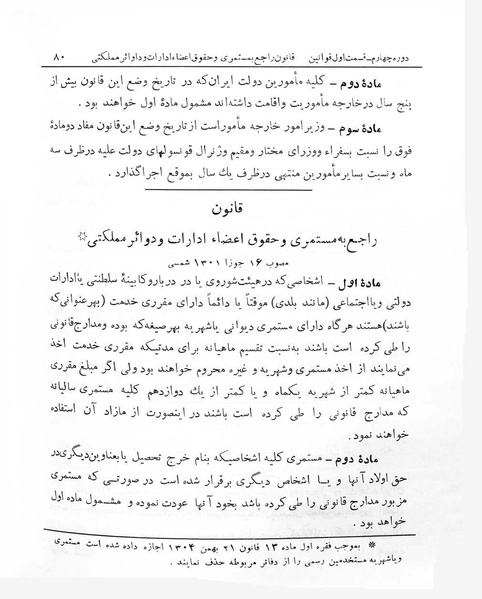 دوره چهارم ـ قسمت اول قوانین قانون راجع بمستمری و حقوق اعضاء ادارات و دوائر مملکتی ۸۰
مادۀ دوم - کلیه مأمورین دولت ایران که در تاریخ وضع این قانون بیش از
پنج سال در خارجه مأموریت واقامت داشته‌اند مشمول مادۀ اول خواهند بود .
مادۀ سوم - وزیر امور خارجه مأمور است از تاریخ وضع این قانون مفاد دو مادۀ
فوق را نسبت بسفراء ووزرای مختار ومقیم وژنرال قونسولهای دولت علیه در ظرف سه
ماه و نسبت بسایر مأمورین منتهی در ظرف یك سال بموقع اجرا گذارد .
قانون
راجع به مستمری و حقوق اعضاء ادارات و دوائر مملکتی*
مصوب ۱۶ جوزا ۱۳۰۱ شمسی
مادۀ اول - اشخاصی که در هیئت شوروی یا در دربار و کابینۀ سلطنتی یا ادارات
دولتی ویا اجتماعی (مانند بلدی) موقتاً یا دائماً دارای مقرری خدمت (بهر عنوانی که
باشند) هستند هر گاه دارای مستمری دیوانی یا شهریه بهر صیغه که بوده ومدارج قانونی
را طی کرده است باشند به‌نسبت تقسیم ماهیانه برای مدتیکه مقرری خدمت اخذ
می‌نمایند از اخذ مستمری وشهریه و غیره محروم خواهند بود ولی اگر مبلغ مقرری
ماهیانه کمتر از شهریه یکماه و یا کمتر از یك دوازدهم کلیه مستمری سالیانه
که مدارج قانونی را طی کرده است باشند در اینصورت از مازاد آن استفاده
خواهند نمود .
مادۀ دوم - مستمری کلیه اشخاصیکه بنام خرج تحصیل یا بعناوین دیگری در
حق اولاد آنها و یا اشخاص دیگری برقرار شده است در صورتی که مستمری
مزبور مدارج قانونی را طی کرده باشد بخود آنها عودت نموده و مشمول ماده اول
خواهد بود .
* بموجب فقره اول ماده ۱۳ قانون ۲۱ بهمن ۱۳۰۴ اجازه داده شده است مستمری
ویا شهریه مستخدمین رسمی را از دفاتر مربوطه حذف نمایند .